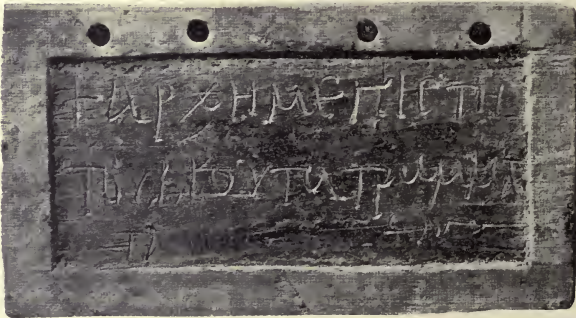 +ΑΡΧΗΜΕΓΙСΤΗ
ΤΟΥΒΙΟΥΤΑΓΡΑΜΜΑ